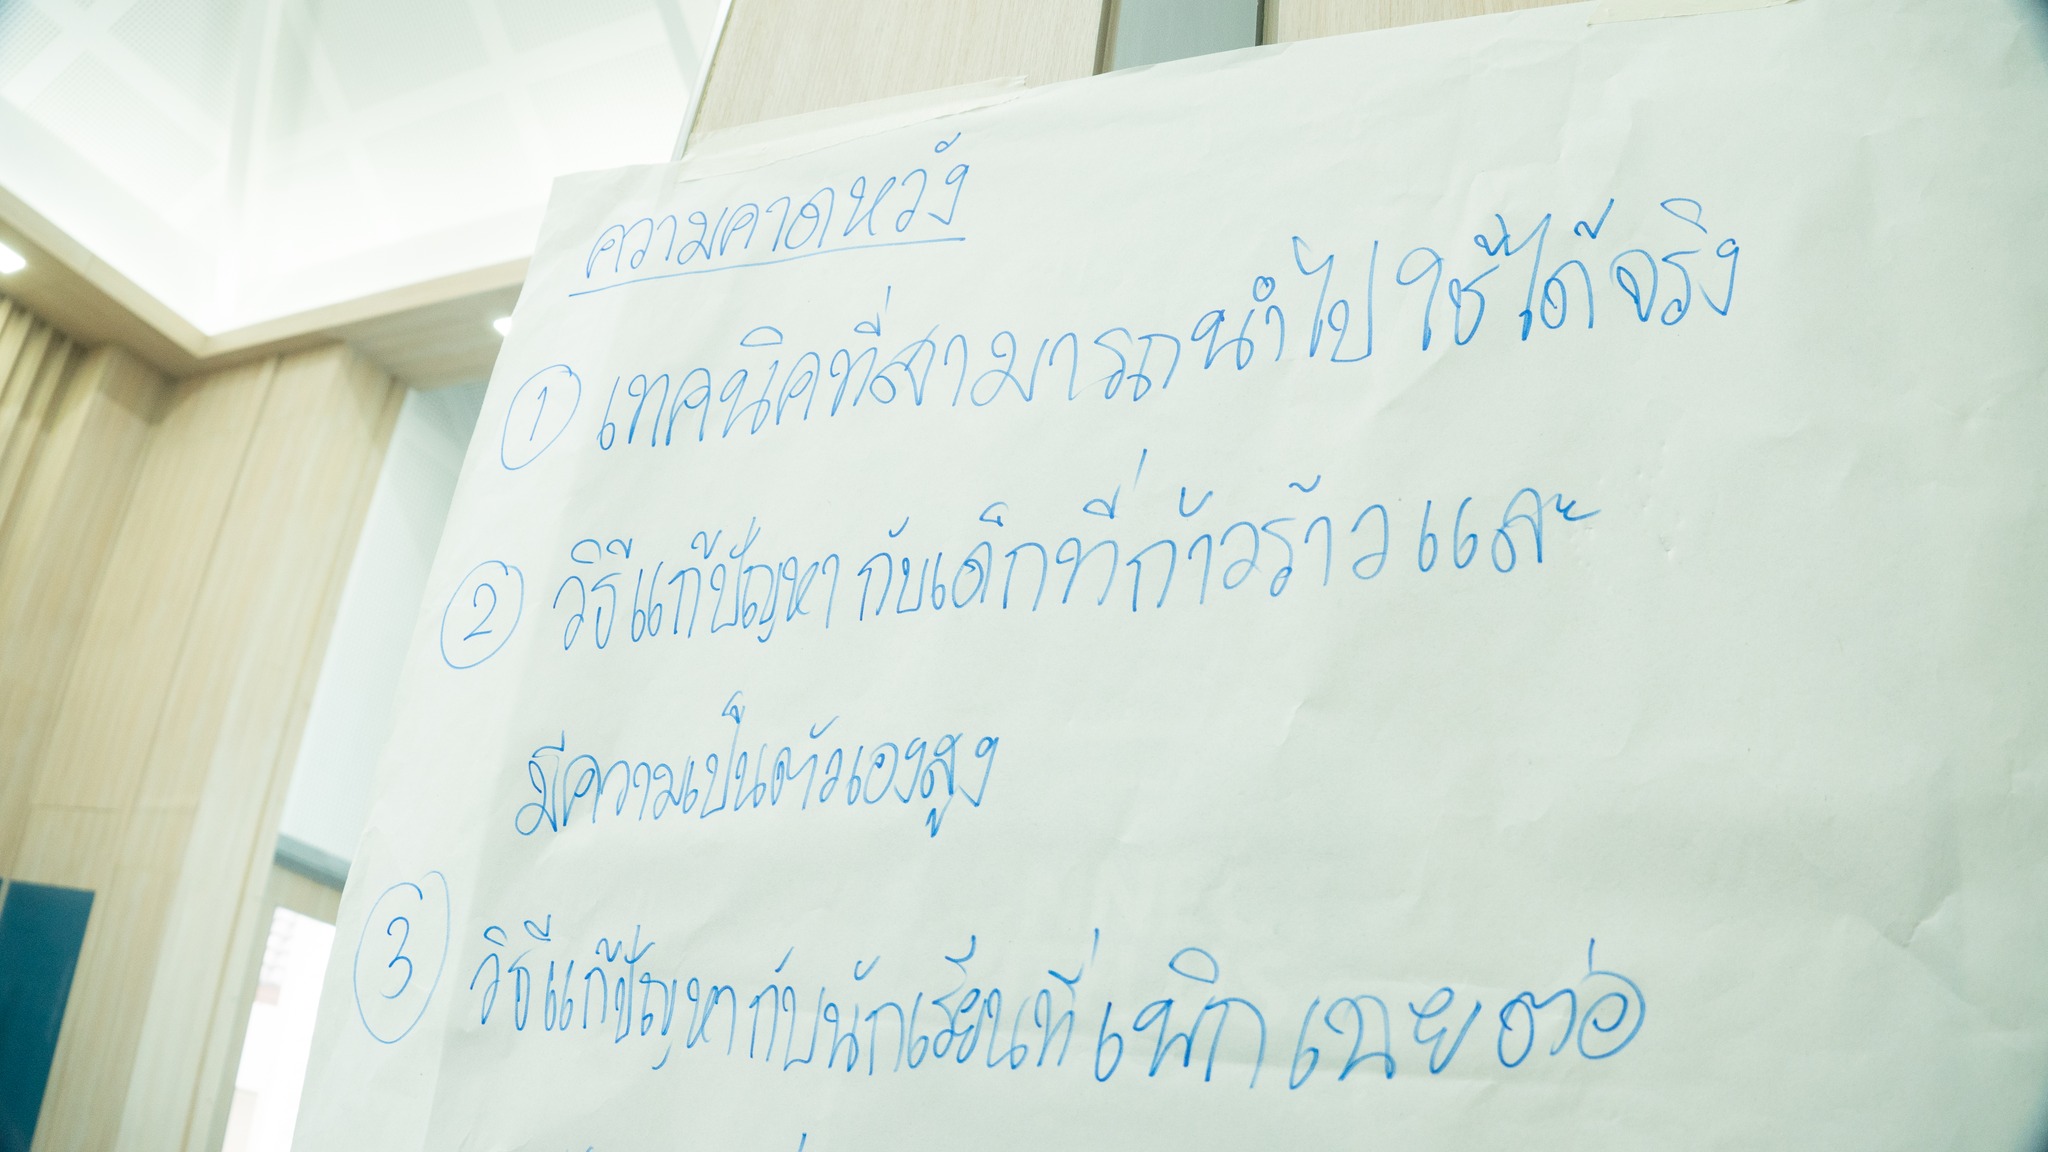 ความคาดหวัง
① เทคนิคที่สามารถนำไปใช้ได้จริง
② วิธีแก้ปัญหากับเด็กที่ก้าวร้าวและ
มีความเป็นตัวเองสูง
③ วิธีแก้ปัญหากับนักเรียนที่เพิกเฉยต่อ